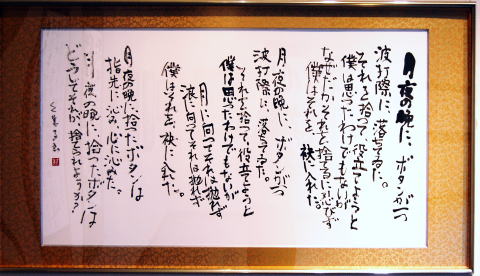 月夜の晩に、ボタンが一つ
波打際に、落ちてゐた。
それを拾って、役立てようと
僕は思ったわけでもないが
なぜだかそれを捨てるに忍びず
僕はそれを、袂に入れた。
月夜の晩に、ボタンが一つ
波打際に、落ちてゐた。
それを拾って、役立てようと
僕は思ったわけでもないが
月に向ってそれは抛れず
浪に向ってそれは抛れず
僕はそれを、袂に入れた。
月夜の晩に、拾ったボタンは
指先に沁み、心に沁みた。
月夜の晩に、拾ったボタンは
どうしてそれが、捨てられようか?